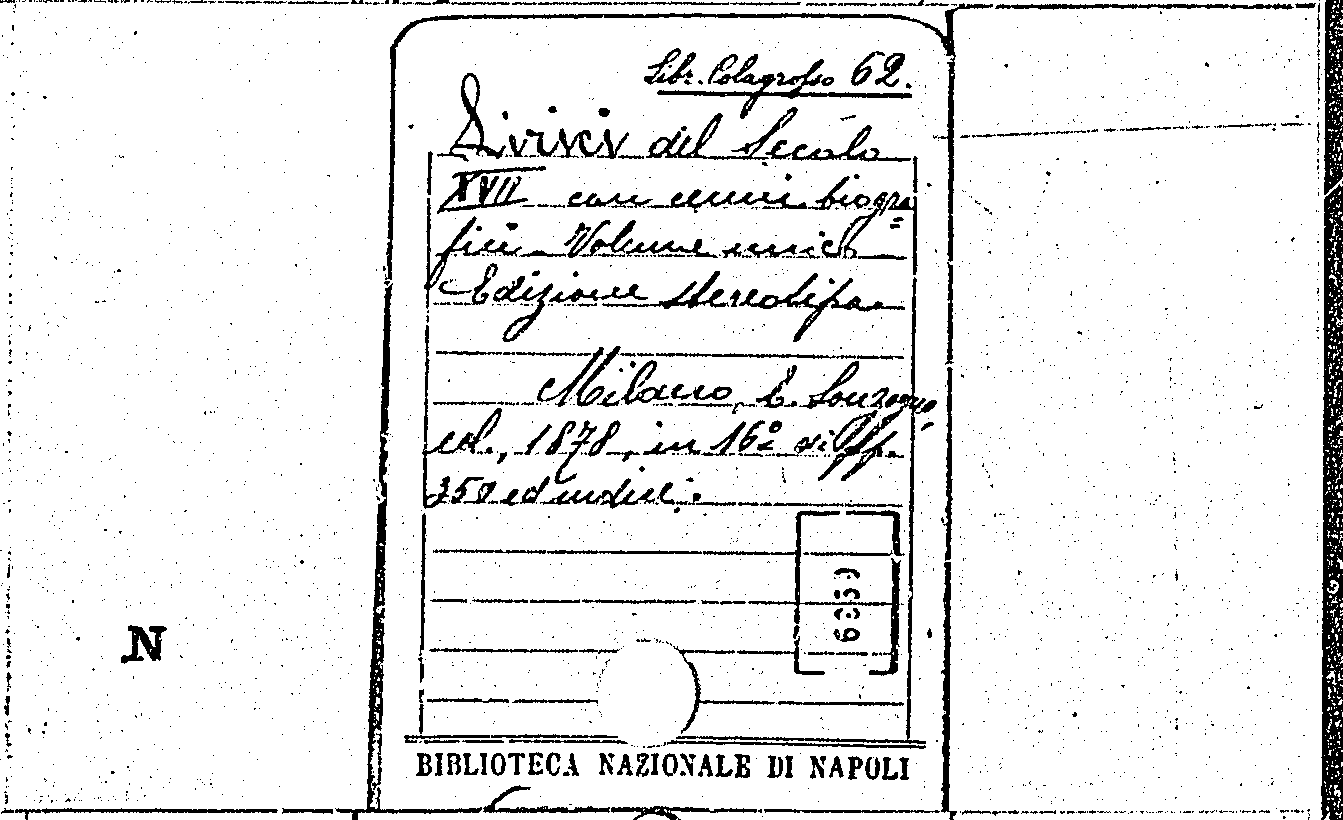 Libr. Colagrosso 62.
Lirici del Secolo
XVII con cenni biogra=
fici. Volume unico
Edizione stereotipa
Milano, E. Sonzogno,
ed., 1878, in 16º di pp.
350 ed indice.
6360
N
BIBLIOTECA NAZIONALE DI NAPOLI